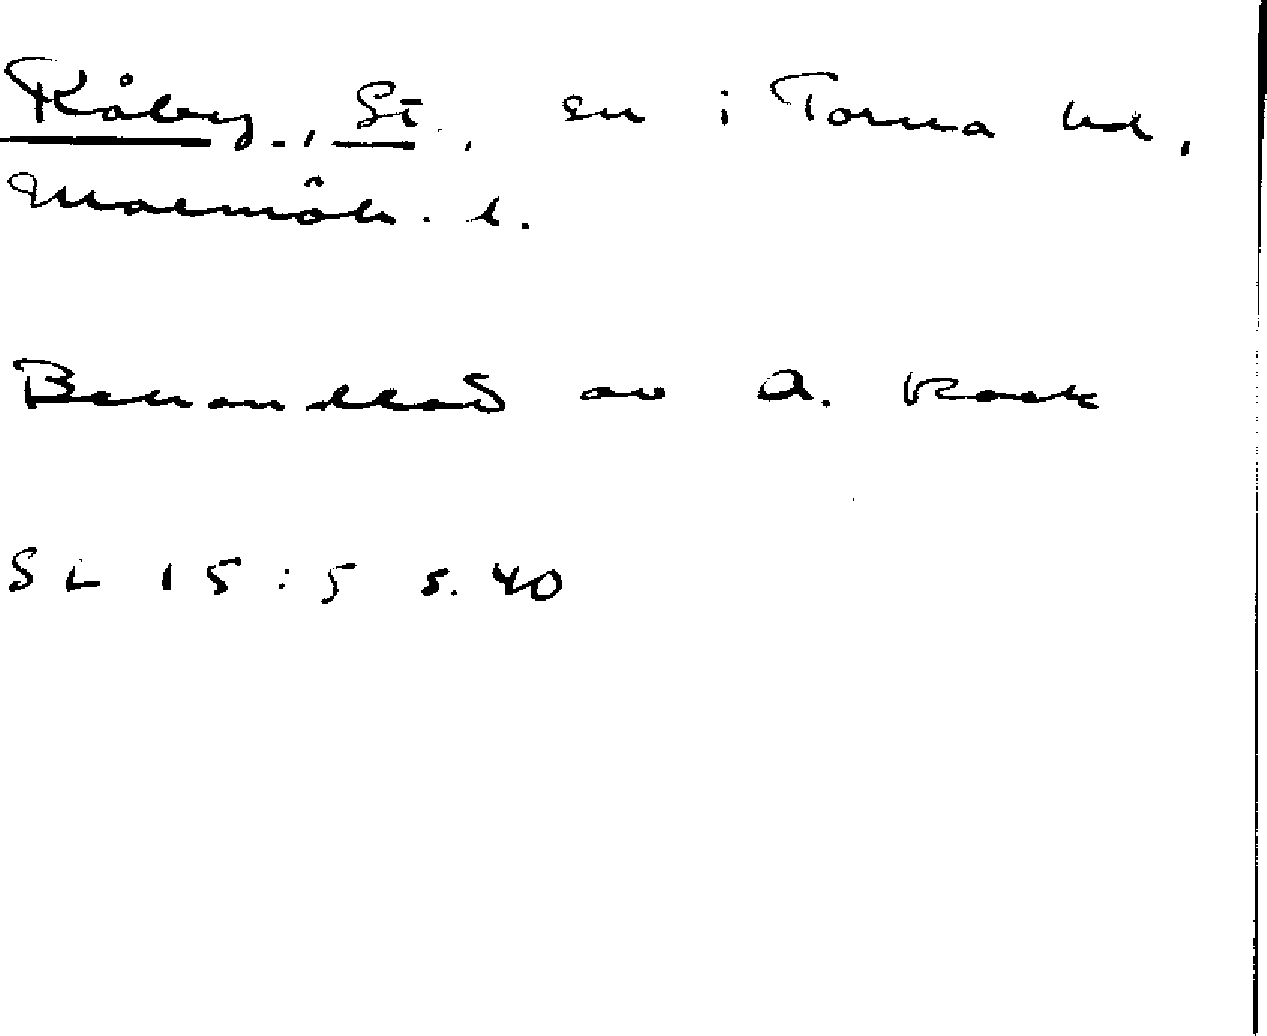 Råby, St., sn i Torna hd,
Malmöh. l.
Behandlad av A. Kock
SL 15:5 s. 40